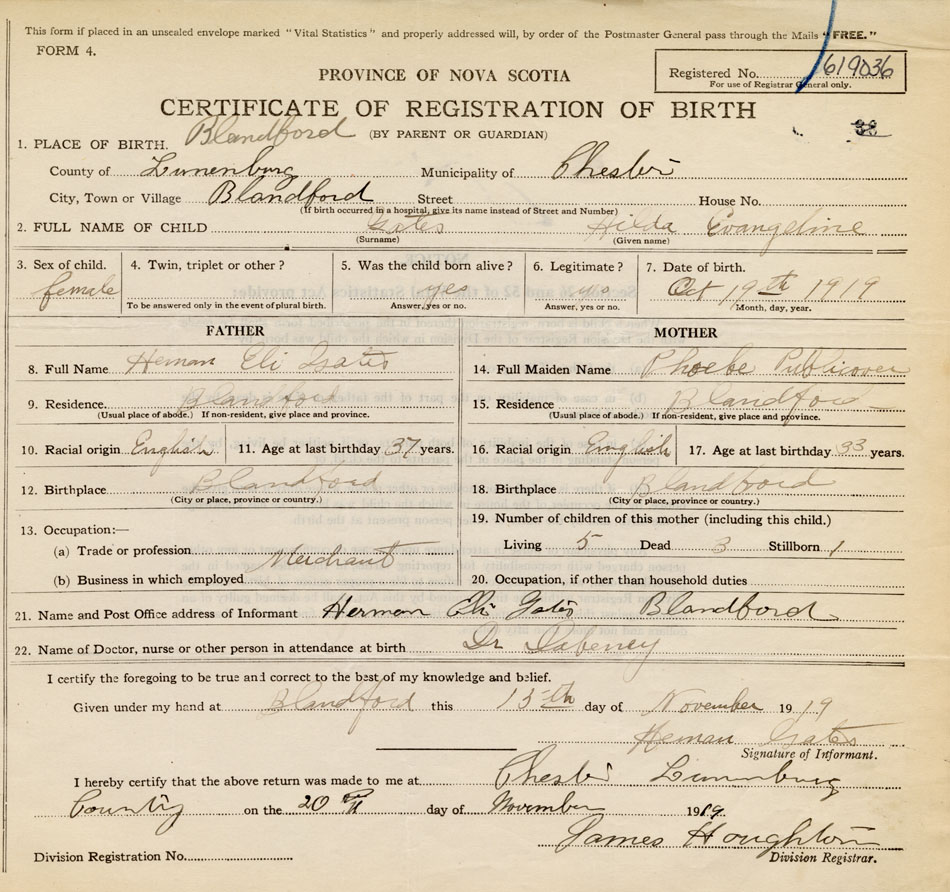 This form if placed in an unsealed envelope marked "Vital Statistics" and properly addressed will, by order of the Postmaster General pass through the Mails "FREE."
FORM 4.
PROVINCE OF NOVA SCOTIA
Registered No. 619036
For use of Registrar General only.
CERTIFICATE OF REGISTRATION OF BIRTH
(BY PARENT OR GUARDIAN)
33
1. PLACE OF BIRTH. Blandford
County of Lunenburg Municipality of Chester
City, Town or Village Blandford Street House No.
(If birth occurred in a hospital, give its name instead of Street and Number)
2. FULL NAME OF CHILD Gates Hilda Evangeline
(Surname) (Given name)
3. Sex of child. 4. Twin, triplet or other? 5. Was the child born alive? 6. Legitimate? 7. Date of birth.
female yes yes Oct 19th 1919
To be answered only in the event of plural birth. Answer, yes or no. Answer, yes or no. Month, day, year.
FATHER MOTHER
8. Full Name Heman Eli Gates 14. Full Maiden Name Phoebe Publicover
9. Residence Blandford 15. Residence Blandford
(Usual place of abode.) If non-resident, give place and province. (Usual place of abode.) If non-resident, give place and province.
10. Racial origin English 11. Age at last birthday 37 years. 16. Racial origin English 17. Age at last birthday 33 years.
12. Birthplace Blandford 18. Birthplace Blandford
(City or place, province or country.) (City or place, province or country.)
13. Occupation:— 19. Number of children of this mother (including this child.)
(a) Trade or profession Merchant Living 5 Dead 3 Stillborn 1
(b) Business in which employed 20. Occupation, if other than household duties
21. Name and Post Office address of Informant Herman Eli Gates Blandford
22. Name of Doctor, nurse or other person in attendance at birth Dr
I certify the foregoing to be true and correct to the best of my knowledge and belief.
Given under my hand at Blandford this 15th day of November 1919
Heman Gates
Signature of Informant.
I hereby certify that the above return was made to me at Chester Lunenburg
County on the 20th day of November 1919.
James Houghton
Division Registrar.
Division Registration No.